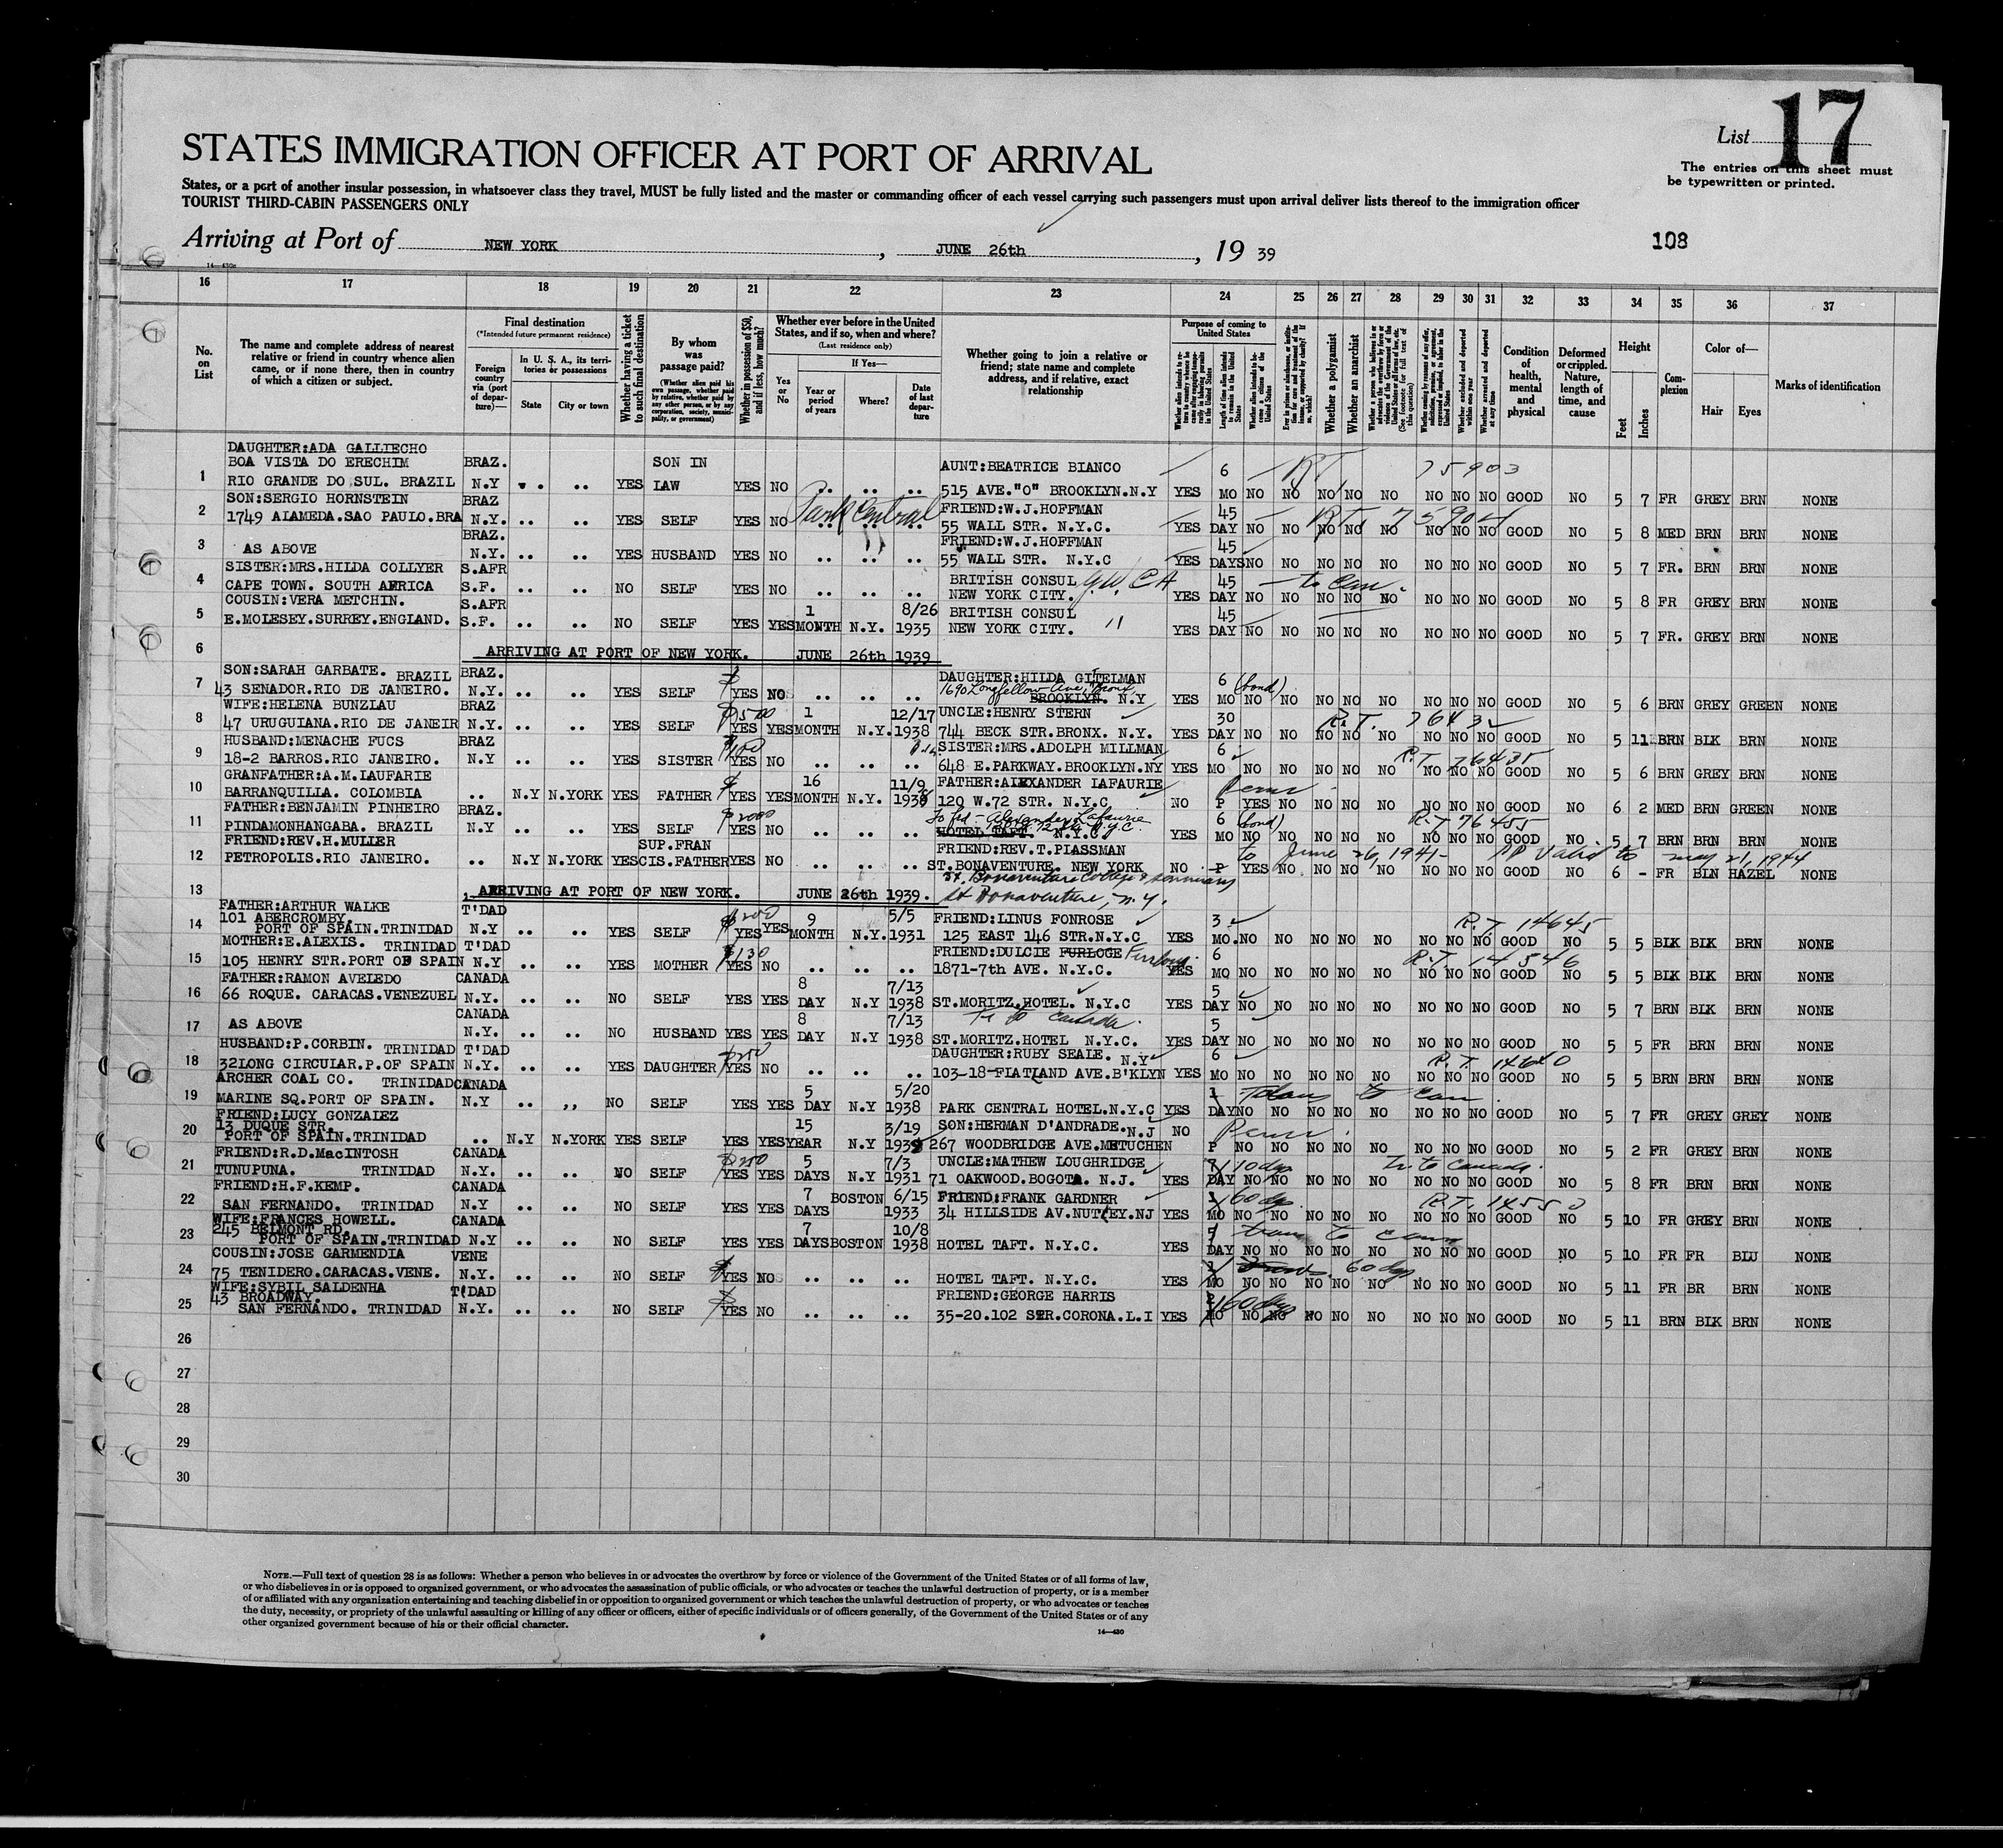 List 17
The entries on this sheet must
be typewritten or printed.
STATES IMMIGRATION OFFICER AT PORT OF ARRIVAL
States, or a port of another insular possession, in whatsoever class they travel, MUST be fully listed and the master or commanding officer of each vessel carrying such passengers must upon arrival deliver lists thereof to the immigration officer
TOURIST THIRD-CABIN PASSENGERS ONLY
Arriving at Port of NEW YORK, JUNE 26th, 19 39
108
16 17 18 19 20 21 22 23 24 25 26 27 28 29 30 31 32 33 34 35 36 37
No. on List
The name and complete address of nearest relative or friend in country whence alien came, or if none there, then in country of which a citizen or subject.
Final destination
(*Intended future permanent residence)
Foreign country via (port of departure)—
In U. S. A., its territories or possessions
State City or town
Whether having a ticket to such final destination
By whom was passage paid?
Whether in possession of $50, and if less, how much?
Whether ever before in the United States, and if so, when and where?
(Last residence only)
Yes or No
If Yes—
Year or period of years
Where?
Date of last departure
Whether going to join a relative or friend; state name and complete address, and if relative, exact relationship
Purpose of coming to United States
Whether a polygamist
Whether an anarchist
Condition of health, mental and physical
Deformed or crippled. Nature, length of time, and cause
Height
Feet Inches
Complexion
Color of—
Hair Eyes
Marks of identification
DAUGHTER:ADA GALLIECHO
BOA VISTA DO ERECHIM BRAZ. SON IN AUNT:BEATRICE BIANCO 6 RT 75903
1 RIO GRANDE DO SUL. BRAZIL N.Y .. .. YES LAW YES NO .. .. .. 515 AVE."O" BROOKLYN.N.Y YES MO NO NO NO NO NO NO NO NO GOOD NO 5 7 FR GREY BRN NONE
SON:SERGIO HORNSTEIN BRAZ Park Central FRIEND:W.J.HOFFMAN 45 RT. 75904
2 1749 ALAMEDA.SAO PAULO.BRA N.Y. .. .. YES SELF YES NO 55 WALL STR. N.Y.C. YES DAY NO NO NO NO NO NO NO NO GOOD NO 5 8 MED BRN BRN NONE
BRAZ. FRIEND:W.J.HOFFMAN 45
3 AS ABOVE N.Y. .. .. YES HUSBAND YES NO .. .. .. 55 WALL STR. N.Y.C YES DAYS NO NO NO NO NO NO NO NO GOOD NO 5 7 FR. BRN BRN NONE
SISTER:MRS.HILDA COLLYER S.AFR BRITISH CONSUL 45 to Can.
4 CAPE TOWN. SOUTH AFRICA S.F. .. .. NO SELF YES NO .. .. .. NEW YORK CITY. YES DAY NO NO NO NO NO NO NO NO GOOD NO 5 8 FR GREY BRN NONE
COUSIN:VERA METCHIN. S.AFR 1 8/26 BRITISH CONSUL 45
5 E.MOLESEY.SURREY.ENGLAND. S.F. .. .. NO SELF YES YES MONTH N.Y. 1935 NEW YORK CITY. " YES DAY NO NO NO NO NO NO NO NO GOOD NO 5 7 FR. GREY BRN NONE
6 ARRIVING AT PORT OF NEW YORK. JUNE 26th 1939
SON:SARAH GARBATE. BRAZIL BRAZ. DAUGHTER:HILDA GITELMAN 6 (bond)
1690 Longfellow Ave. Bronx
7 43 SENADOR.RIO DE JANEIRO. N.Y. .. .. YES SELF YES NO .. .. .. BROOKLYN. N.Y YES MO NO NO NO NO NO NO NO NO GOOD NO 5 6 BRN GREY GREEN NONE
WIFE:HELENA BUNZLAU BRAZ $500 1 12/17 UNCLE:HENRY STERN 30 R.T. 76432
8 47 URUGUIANA.RIO DE JANEIR N.Y. .. .. YES SELF YES YES MONTH N.Y. 1938 744 BECK STR.BRONX. N.Y. YES DAY NO NO NO NO NO NO NO NO GOOD NO 5 11 BRN BLK BRN NONE
HUSBAND:MENACHE FUCS BRAZ $100 SISTER:MRS.ADOLPH MILLMAN 6 R.T. 76435
9 18-2 BARROS.RIO JANEIRO. N.Y .. .. YES SISTER YES NO .. .. .. 648 E.PARKWAY.BROOKLYN.NY YES MO NO NO NO NO NO NO NO NO GOOD NO 5 6 BRN GREY BRN NONE
GRANFATHER:A.M.LAUFARIE 16 11/9 FATHER:ALEXANDER LAFAURIE Perm
10 BARRANQUILLA. COLOMBIA .. N.Y N.YORK YES FATHER YES YES MONTH N.Y. 1938 120 W.72 STR. N.Y.C NO P YES NO NO NO NO NO NO NO GOOD NO 6 2 MED BRN GREEN NONE
FATHER:BENJAMIN PINHEIRO BRAZ. $2000 to frd - Alexander Lafaurie 6 (bond) R.T 76455
11 PINDAMONHANGABA. BRAZIL N.Y .. .. YES SELF YES NO .. .. .. HOTEL TAFT. N.Y.C. YES MO NO NO NO NO NO NO NO NO GOOD NO 5 7 BRN BRN BRN NONE
FRIEND:REV.H.MULLER SUP.FRAN FRIEND:REV.T.PLASSMAN to June 26, 1941- valid to May 21, 1944
12 PETROPOLIS.RIO JANEIRO. .. N.Y N.YORK YES CIS.FATHER YES NO .. .. .. ST.BONAVENTURE. NEW YORK NO P YES NO NO NO NO NO NO NO GOOD NO 6 - FR BLN HAZEL NONE
St. Bonaventure College & Seminary
13 ARRIVING AT PORT OF NEW YORK. JUNE 26th 1939. St Bonaventure, N.Y.
FATHER:ARTHUR WALKE T'DAD
101 ABERCROMBY. $200 9 5/5 FRIEND:LINUS FONROSE 3 R.T. 14645
14 PORT OF SPAIN.TRINIDAD N.Y .. .. YES SELF YES YES MONTH N.Y. 1931 125 EAST 146 STR.N.Y.C YES MO. NO NO NO NO NO NO NO NO GOOD NO 5 5 BLK BLK BRN NONE
MOTHER:E.ALEXIS. TRINIDAD T'DAD $130 FRIEND:DULCIE FURLOGE Furlong 6 R.T. 14546
15 105 HENRY STR.PORT OF SPAIN N.Y .. .. YES MOTHER YES NO .. .. .. 1871-7th AVE. N.Y.C. YES MO NO NO NO NO NO NO NO NO GOOD NO 5 5 BLK BLK BRN NONE
FATHER:RAMON AVELEDO CANADA 8 7/13 5
16 66 ROQUE. CARACAS.VENEZUEL N.Y. .. .. NO SELF YES YES DAY N.Y 1938 ST.MORITZ.HOTEL. N.Y.C YES DAY NO NO NO NO NO NO NO NO GOOD NO 5 7 BRN BLK BRN NONE
CANADA 8 7/13 Tr to Canada. 5
17 AS ABOVE N.Y. .. .. NO HUSBAND YES YES DAY N.Y 1938 ST.MORITZ.HOTEL N.Y.C. YES DAY NO NO NO NO NO NO NO NO GOOD NO 5 5 FR BRN BRN NONE
HUSBAND:P.CORBIN. TRINIDAD T'DAD $250 DAUGHTER:RUBY SEALE. N.Y 6 R.T. 14640
18 32LONG CIRCULAR.P.OF SPAIN N.Y. .. .. YES DAUGHTER YES NO .. .. .. 103-18-FLATLAND AVE.B'KLYN YES MO NO NO NO NO NO NO NO NO GOOD NO 5 5 BRN BRN BRN NONE
ARCHER COAL CO. TRINIDAD CANADA 5 5/20 1 Trans to Can.
19 MARINE SQ.PORT OF SPAIN. N.Y .. ,, NO SELF YES YES DAY N.Y 1938 PARK CENTRAL HOTEL.N.Y.C YES DAY NO NO NO NO NO NO NO NO GOOD NO 5 7 FR GREY GREY NONE
FRIEND:LUCY GONZALEZ
13 DUQUE STR. 15 3/19 SON:HERMAN D'ANDRADE. N.J NO Perm.
20 PORT OF SPAIN.TRINIDAD .. N.Y N.YORK YES SELF YES YES YEAR N.Y 1939 267 WOODBRIDGE AVE.METUCHEN P NO NO NO NO NO NO NO NO GOOD NO 5 2 FR GREY BRN NONE
FRIEND:R.D.MacINTOSH CANADA $250 5 7/3 UNCLE:MATHEW LOUGHRIDGE 10 dys Tr. to Canada.
21 TUNUPUNA. TRINIDAD N.Y. .. .. NO SELF YES YES DAYS N.Y 1931 71 OAKWOOD.BOGOTA. N.J. YES DAY NO NO NO NO NO NO NO NO GOOD NO 5 8 FR BRN BRN NONE
FRIEND:H.F.KEMP. CANADA 7 BOSTON 6/15 FRIEND:FRANK GARDNER 1 60 dys R.T. 1455
22 SAN FERNANDO. TRINIDAD N.Y .. .. NO SELF YES YES DAYS 1933 34 HILLSIDE AV.NUTLEY.NJ YES MO NO NO NO NO NO NO NO NO GOOD NO 5 10 FR GREY BRN NONE
WIFE:FRANCES HOWELL. CANADA
245 BELMONT RD. 7 10/8 5 trans to Can
23 PORT OF SPAIN.TRINIDAD N.Y .. .. NO SELF YES YES DAYS BOSTON 1938 HOTEL TAFT. N.Y.C. YES DAY NO NO NO NO NO NO NO NO GOOD NO 5 10 FR FR BLU NONE
COUSIN:JOSE GARMENDIA VENE 1 60 dys
24 75 TENIDERO.CARACAS.VENE. N.Y. .. .. NO SELF YES NO .. .. .. HOTEL TAFT. N.Y.C. YES MO NO NO NO NO NO NO NO NO GOOD NO 5 11 FR BR BRN NONE
WIFE:SYBIL SALDENHA T'DAD
43 BROADWAY. FRIEND:GEORGE HARRIS 2 60 dys
25 SAN FERNANDO. TRINIDAD N.Y. .. .. NO SELF YES NO .. .. .. 35-20.102 STR.CORONA.L.I YES MO NO NO NO NO NO NO NO NO GOOD NO 5 11 BRN BLK BRN NONE
26
27
28
29
30
NOTE.—Full text of question 28 is as follows: Whether a person who believes in or advocates the overthrow by force or violence of the Government of the United States or of all forms of law,
or who disbelieves in or is opposed to organized government, or who advocates the assassination of public officials, or who advocates or teaches the unlawful destruction of property, or is a member
of or affiliated with any organization entertaining and teaching disbelief in or opposition to organized government or which teaches the unlawful destruction of property, or who advocates or teaches
the duty, necessity, or propriety of the unlawful assaulting or killing of any officer or officers, either of specific individuals or of officers generally, of the Government of the United States or of any
other organized government because of his or their official character.
14—430